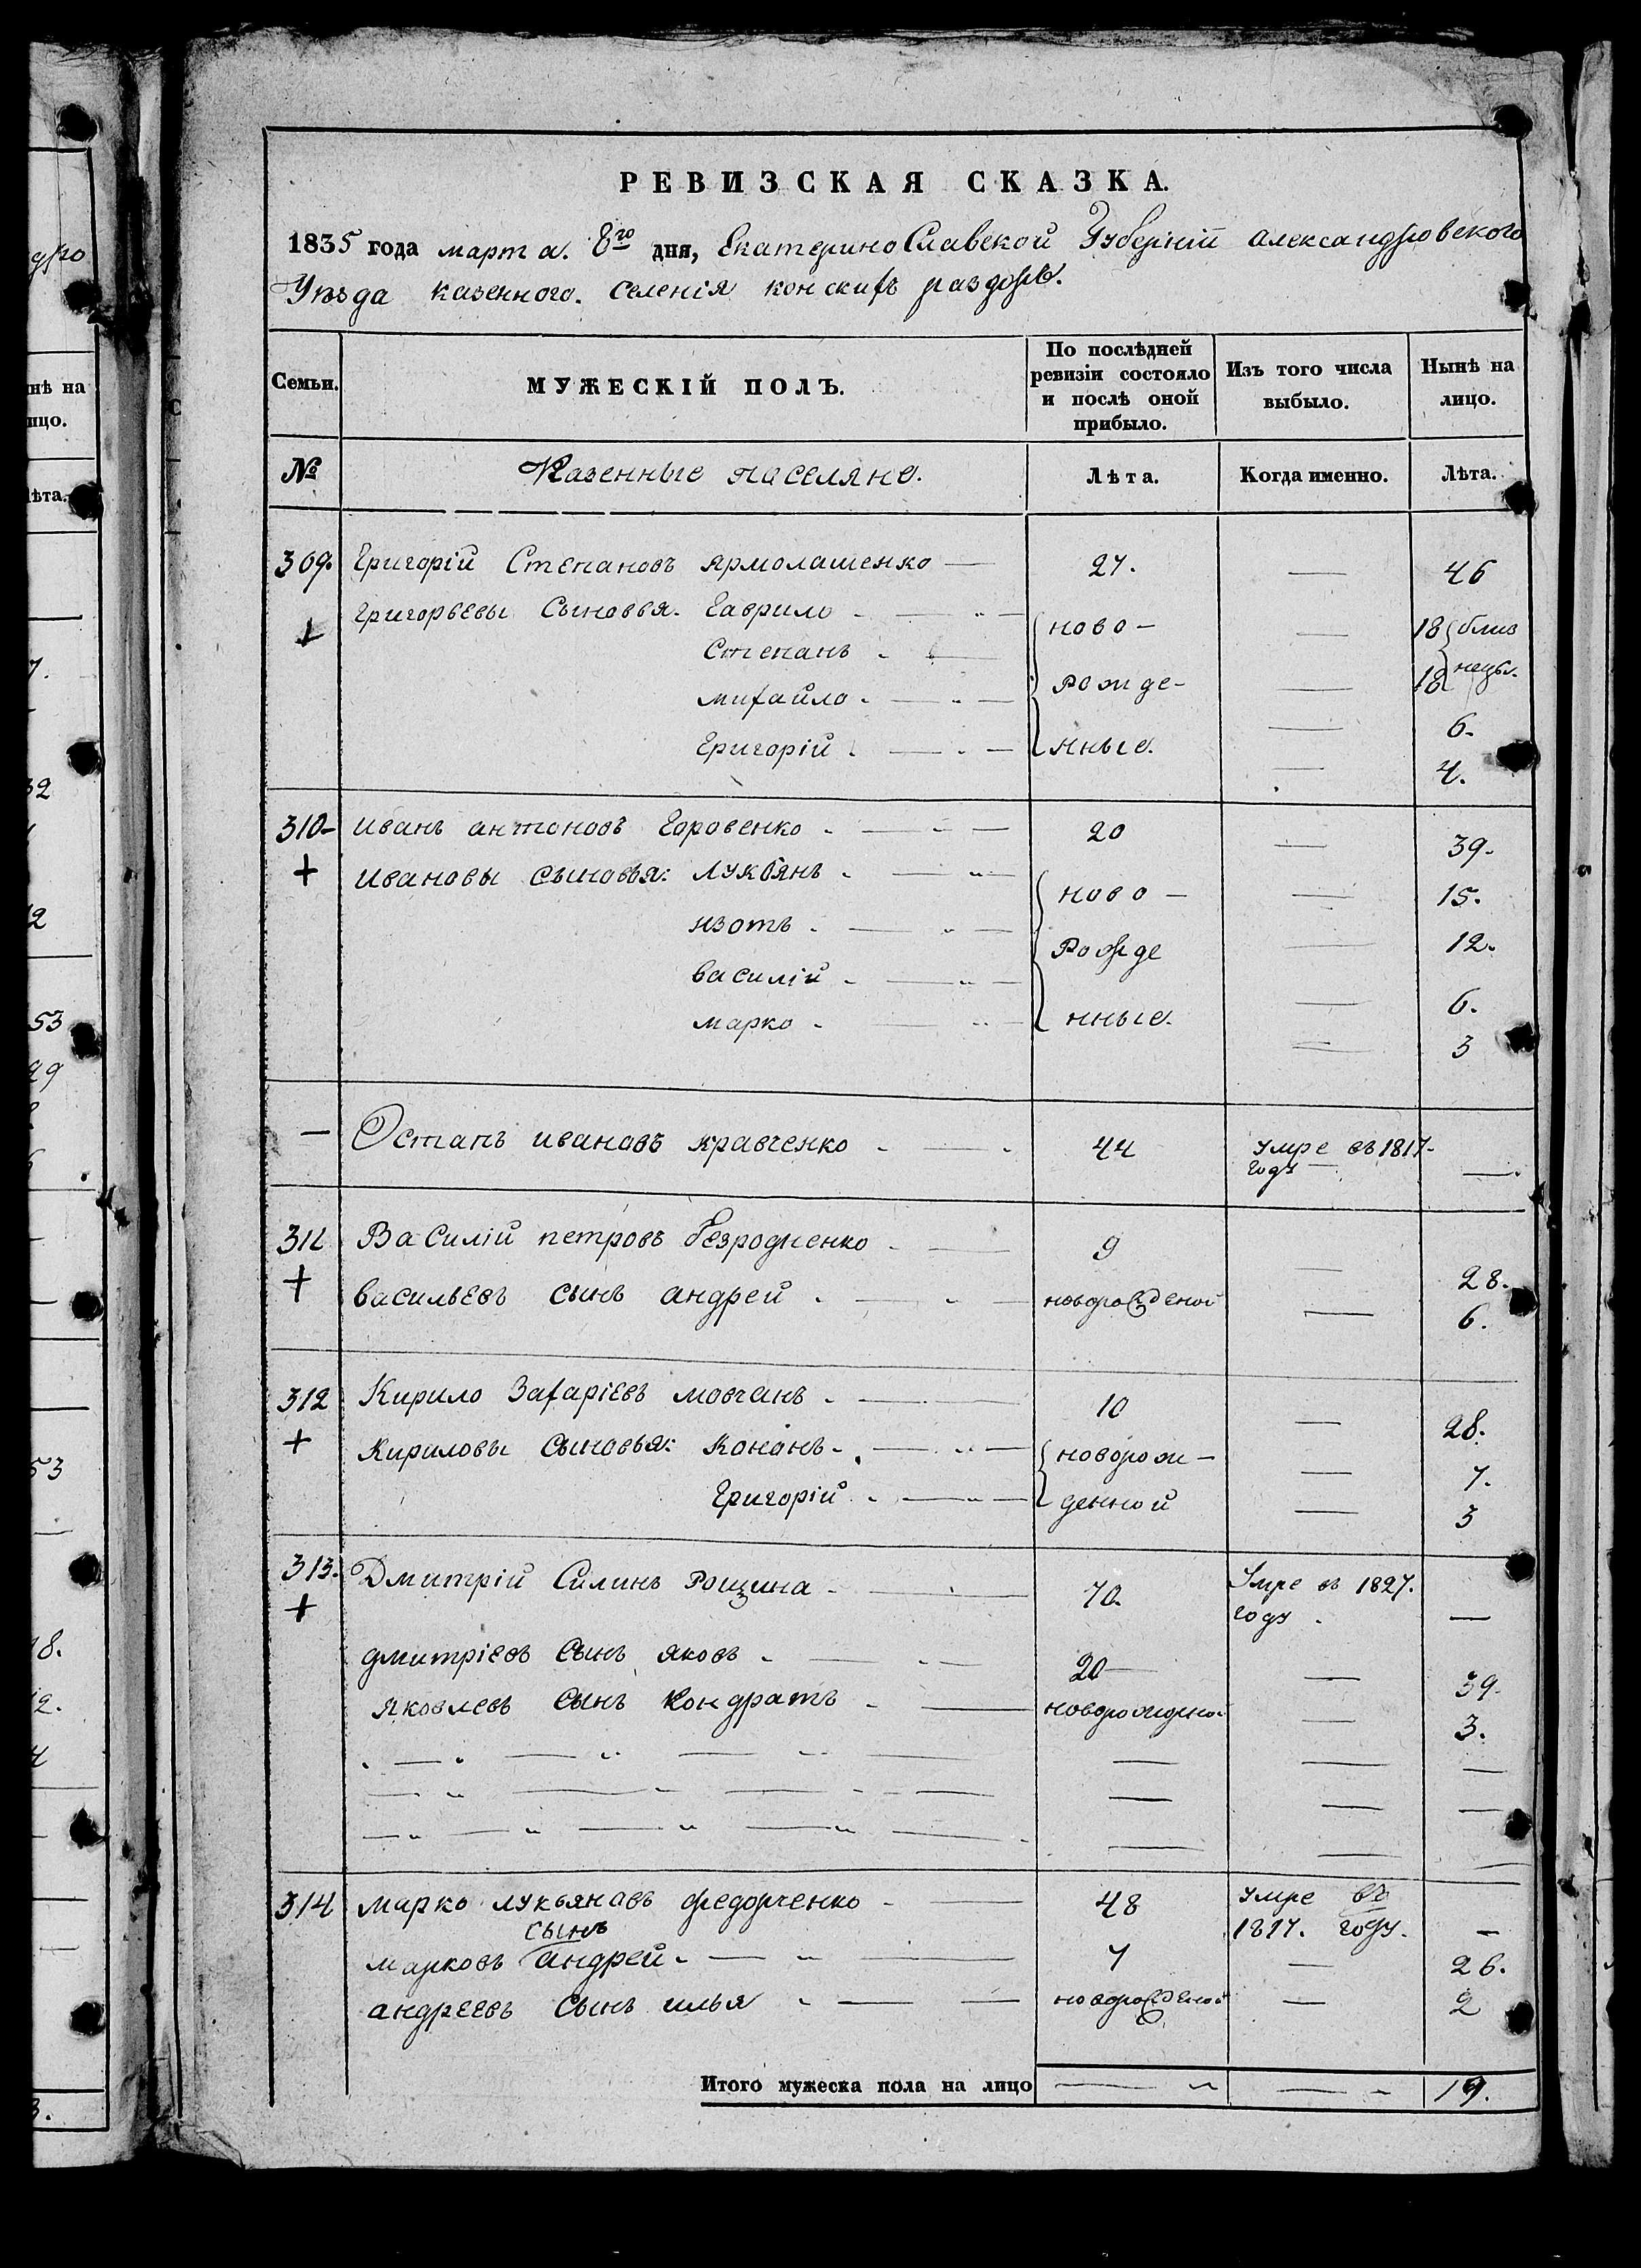 РЕВИЗСКАЯ СКАЗКА.
1835 года марта. 8го дня, Екатерино Славской Губерніи александровского
Уезда казенного. селенія конскихъ раздоръ.
Семьи. МУЖЕСКІЙ ПОЛЪ. По послѣдней ревизіи состояло и послѣ оной прибыло. Изъ того числа выбыло. Нынѣ на лицо.
№ Казенные поселяне. Лѣта. Когда именно. Лѣта.
309. Григорій Степановъ ярмолашенко — 27. — 46
+ Григорьевы Сыновья. Гаврило ново- — 18 близ
Степанъ рожде- — 18 нецы.
михайло нные. — 6.
Григорій — 4.
310- иванъ антоновъ Горовенко 20 — 39.
+ ивановы сыновья: Лукьянъ ново- — 15.
изотъ рожде — 12.
василій нные. — 6.
марко — 3
— Остапъ ивановъ кравченко 44 умре въ 1817- году —
311 Василій петровъ безродненко 9 — 28.
+ васильевъ сынъ андрей новорожденой — 6.
312 Кирило Захаріевъ мовчанъ 10 — 28.
+ Кириловы сыновья: Кононъ новорож- — 7.
Григорій денной — 3
313. Дмитрій Силинъ Рощина 70. Умре въ 1827. году —
+
дмитріевъ сынъ яковъ 20 — 39.
яковлевъ сынъ Кондратъ — 3.
314 марко лукьяновъ федорченко 48 умре въ 1817. году. —
марковъ сынъ андрей 7 — 26.
андреевъ сынъ илья новорожденой — 2
Итого мужеска пола на лицо — — 19.